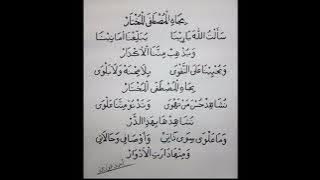 بِجَاهِ الْمُصْطَفَى الْمُخْتَارْ
سَأَلْتُ اللهَ بَارِينَا يُبَلِّغْنَا أَمَانِينَا
وَيُذْهِبْ مِنَّا الْأَكْدَارْ
وَيُحْيِينَا عَلَى التَّقْوَى بِلَا مِحْنَهْ وَلَا بَلْوَى
بِجَاهِ الْمُصْطَفَى الْمُخْتَارْ
نُشَاهِدْ حُسْنَ مَنْ نَهْوَى وَتَدْنُو مِنَّنَا عَلْوَى
نُشَاهِدْهَا بِهٰذِي الدَّارْ
وَمَا عَلْوَى سِوَى ذَاتِي وَأَوْصَافِي وَحَالَاتِي
وَمِنْهَا دَارَتِ الْأَدْوَارْ